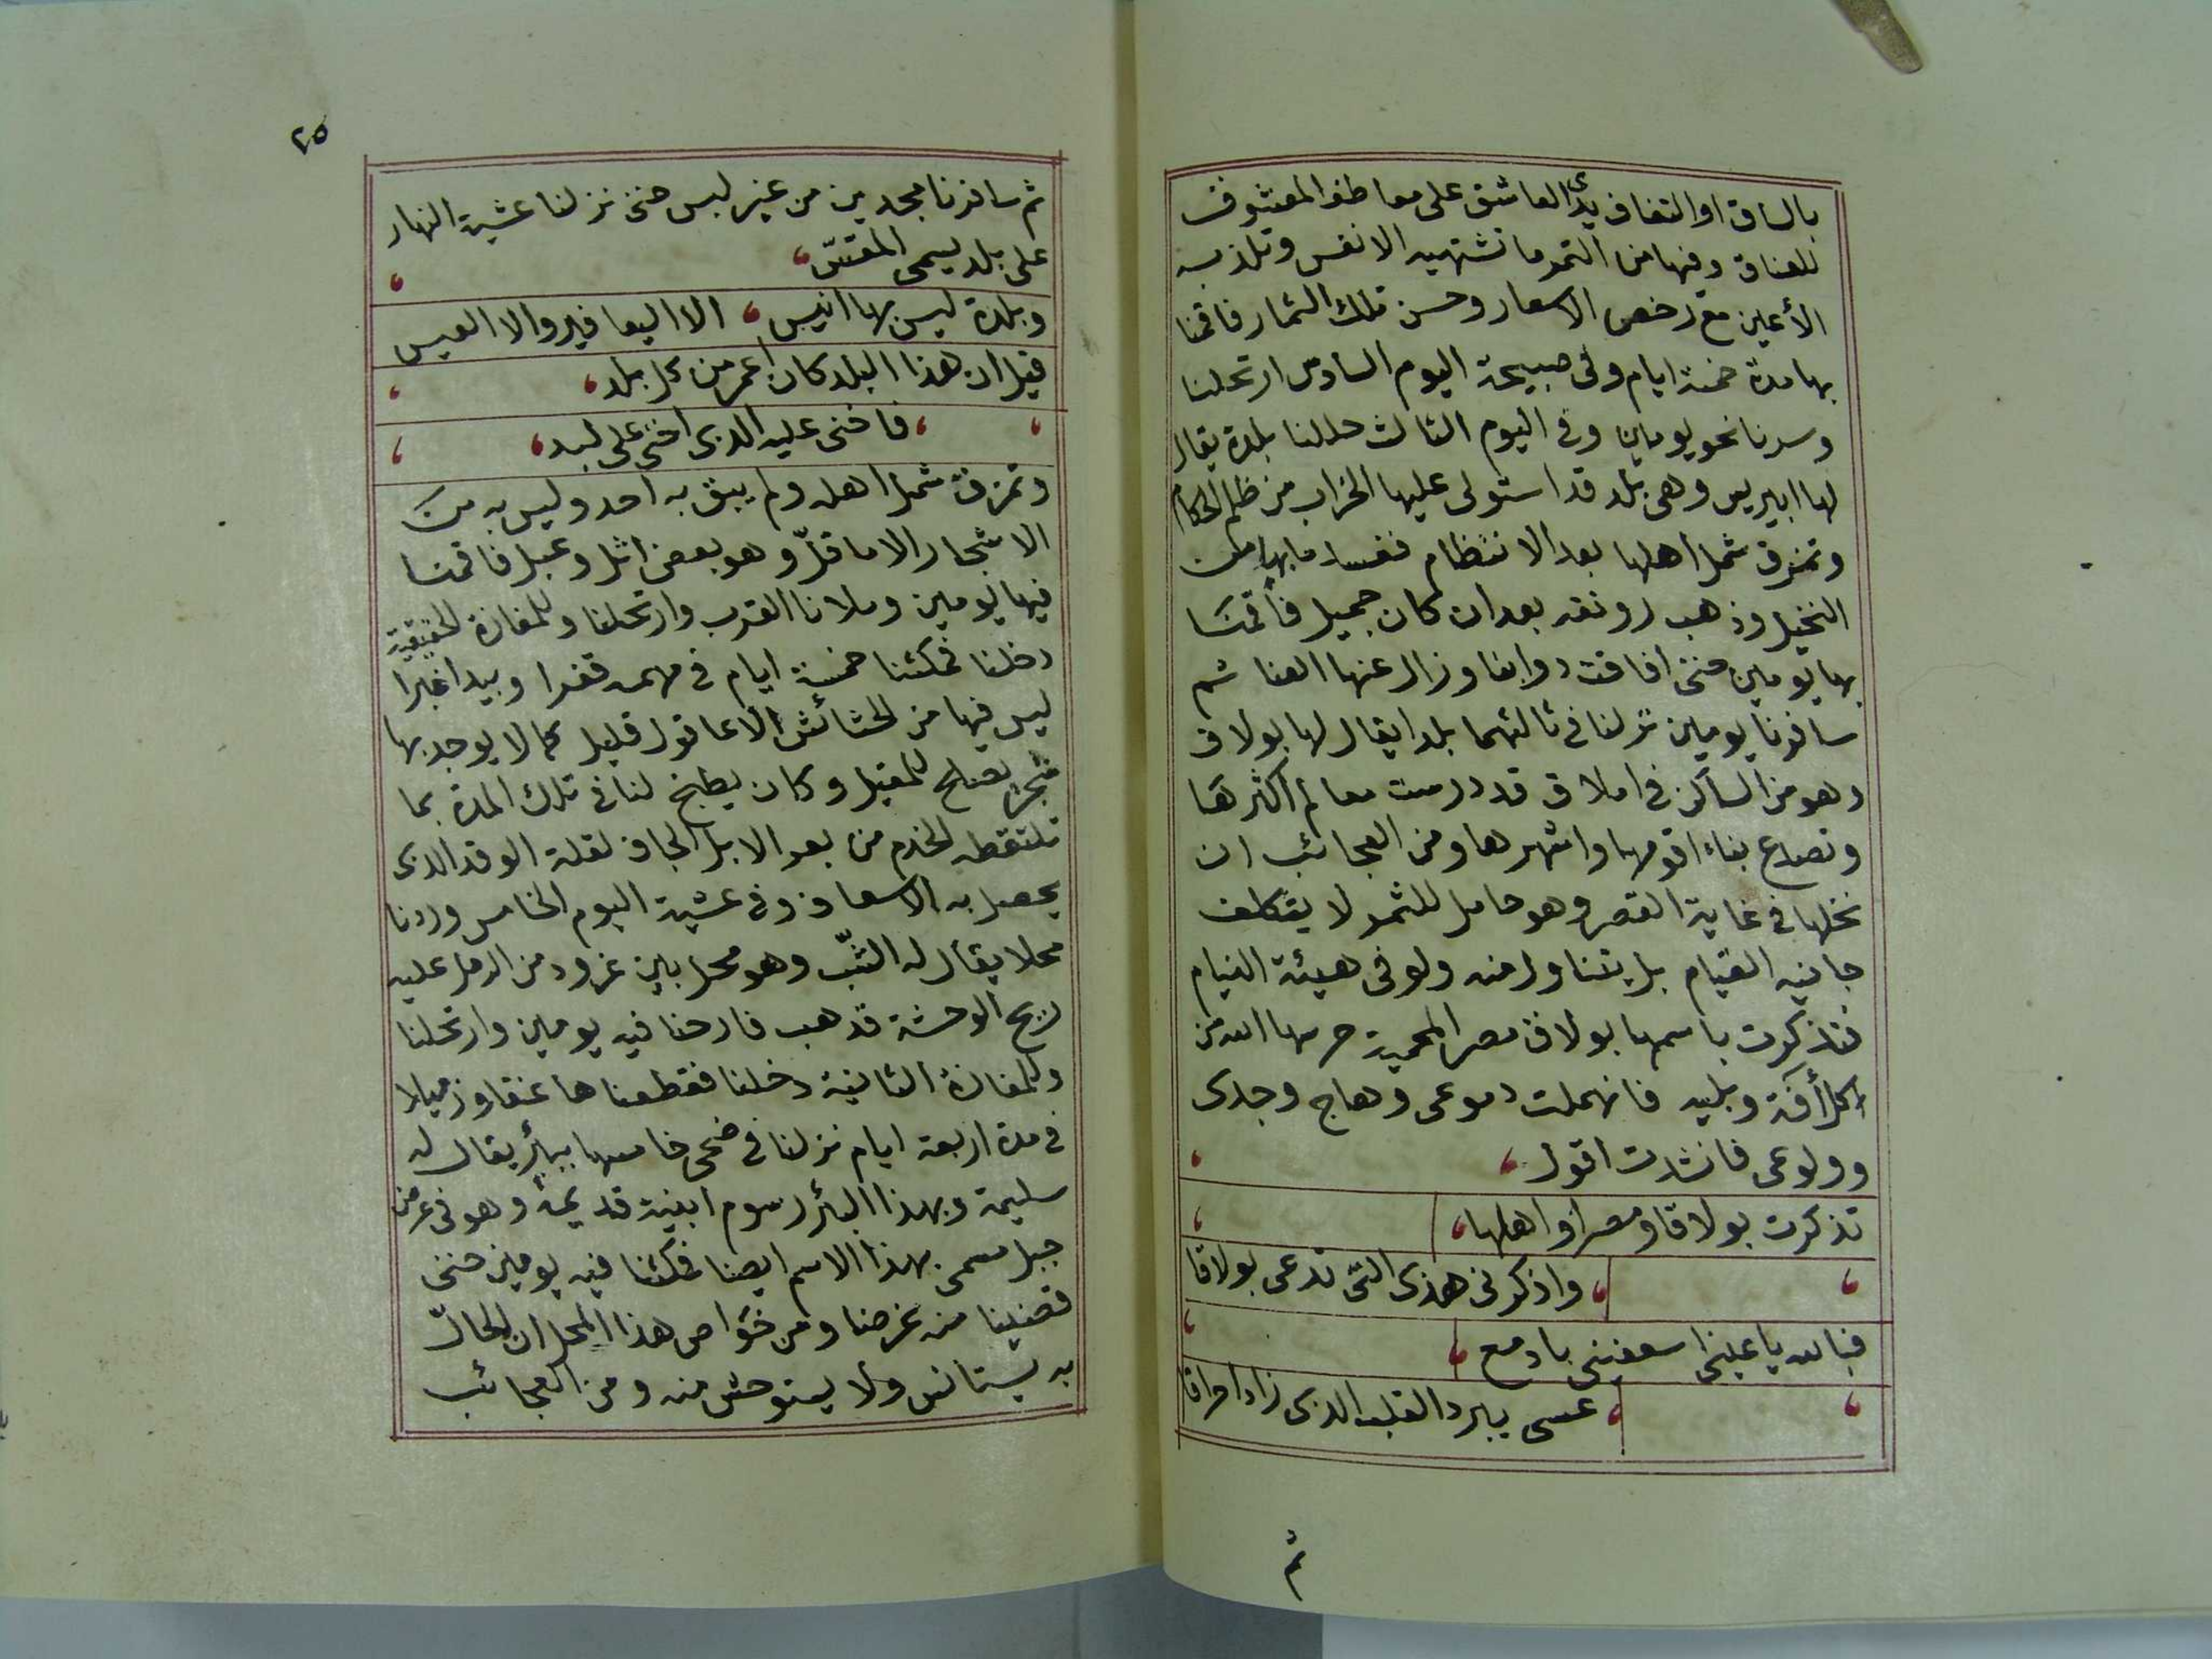 بالساق او التفاف يدى العاشق على معاطف المعشوق
للعناق وفيها من التمر ما تشتهيه الانفس وتلذ به
الأعين مع رخص الاسعار وحسن تلك الثمار فاقمنا
بها مدة خمسة ايام وفى صبيحة اليوم السادس ارتحلنا
وسرنا نحو يومين وفى اليوم الثالث حللنا بلدة يقال
لها ابيريس وهى بلد قد استولى عليها الخراب من ظلم الحكام
وتمزق شمل اهلها بعد الانتظام ففسد ما بها من
النخيل وذهب رونقه بعد ان كان جميل فاقمنا
بها يومين حتى افاقت دوابنا وزال عنها العنا ثم
سافرنا يومين نزلنا فى ثالثهما بلدا يقال لها بولاق
وهو من الساكن فى املاق قد درست معالم اكثرها
وتصدع بناء اقومها واشهرها ومن العجائب ان
نخلها فى غاية القصر وهو حامل للثمر لا يتكلف
جانيه القيام بل يتناول منه ولو فى هيئة النيام
فتذكرت باسمها بولاق مصر المحمية حرسها الله من
كل أفة وبليه فانهملت دموعى وهاج وجدى
وولوعى فانشدت اقول
تذكرت بولاقا ومصرا واهلها
واذكرنى هذى التى تدعى بولاقا
فبالله يا عينى اسعفينى بادمع
عسى يبرد القلب الذى زاد احراقا
ثم
٢٥
ثم سافرنا مجدين من غير لبس حتى نزلنا عشية النهار
على بلد يسمى المقسّ
وبلدة ليس بها انيس الا اليعافير والا العيس
قيل ان هذا البلد كان اعمر من كل بلد
فاخنى عليه الذى اخنى على لبد
وتمزق شمل اهله ولم يبق به احد وليس به من
الاشجار الا ما قلّ وهو بعض اثل وعبل فاقمنا
فيها يومين وملانا القرب وارتحلنا وللمفازة الحقيقية
دخلنا فمكثنا خمسة ايام فى مهمه قفرا وبيدا غبرا
ليس فيها من الحشائش الا عاقول قليل كما لا يوجد بها
شجر يصلح للمقيل وكان يطبخ لنا فى تلك المدة بما
تلتقطه الخدم من بعر الابل الجاف لقلة الوقد الذى
يحصل به الاسعاف وفى عشية اليوم الخامس وردنا
محلا يقال له الشبّ وهو محل بين غرود من الرمل عليه
ريح الوحشة قد هب فارحنا فيه يومين وارتحلنا
وللمفازة الثانية دخلنا فقطعناها عنقا وزميلا
فى مدة اربعة ايام نزلنا فى ضحى خامسها ببأر يقال له
سليمة وبهذا البئر رسوم ابنية قديمة وهو فى عرض
جبل مسمى بهذا الاسم ايضا فمكثنا فيه يومين حتى
قضينا منه غرضنا ومن خواص هذا المحل ان الحالّ
به يستانس ولا يستوحش منه ومن العجائب